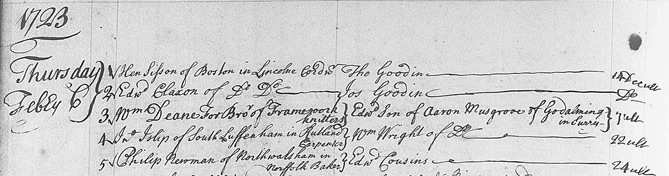 1723
Thursday
Febry 6
1 Hen Sisson of Boston in Lincolne Cordwr Tho Goodin 14 Dec ult
2 Edwd Claxon of Do Do Jos Goodin Do
3 Wm Deane For Bror of Framework knitters Edwd Son of Aaron Musgrove of Godalming in Surry ult
4 Jno Islip of South Luffenham in Rutland Carpenter Wm Wright of Do 22 ult
5 Philip Newman of Northwalsham in Norfolk Baker Edwd Cousins 24 ult